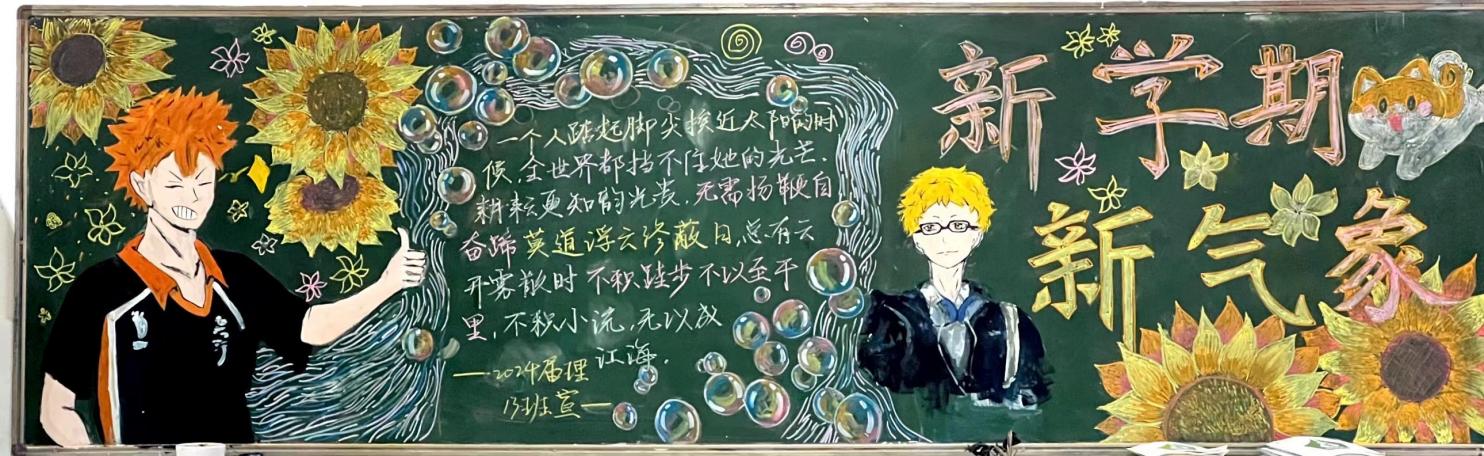 一个人踮起脚尖接近太阳的时
候,全世界都挡不住她的光芒.
耕耘更知韵光贵.无需扬鞭自
奋蹄 莫道浮云终蔽日,总有云
开雾散时 不积跬步 不以至千
里,不积小流,无以成
江海.
——2024届理
13班宣—
新学期
新气象